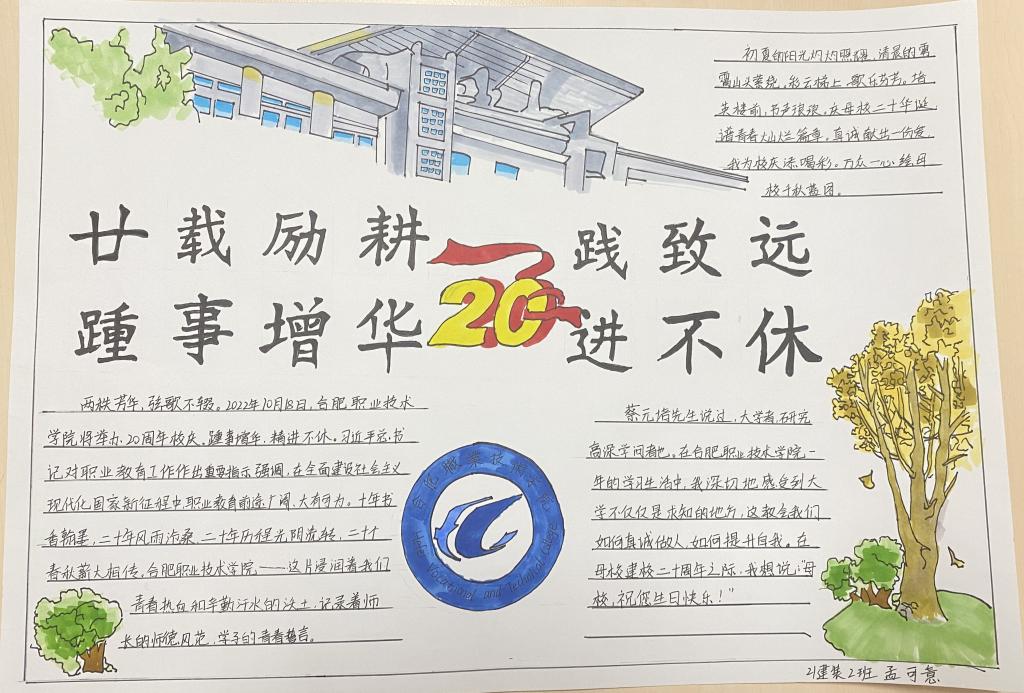 初夏的阳光灼灼照耀,清晨的雾
霭山头萦绕。彩云桥上,歌乐芳芳。培
英楼前,书声琅琅。庆母校二十华诞
谱青春灿烂篇章。真诚献出一份爱,
我为校庆添喝彩。万众一心绘母
校千秋蓝图。
廿载励耕 践致远
踵事增华 20 进不休
两秩芳华,弦歌不辍。2022年10月18日,合肥职业技术
学院将举办20周年校庆。踵事增华,精进不休。习近平总书
记对职业教育工作作出重要指示强调,在全面建设社会主义
现代化国家新征程中,职业教育前途广阔、大有可为。十年书
香翰墨,二十年风雨沧桑,二十年历程光阴流转,二十个
春秋薪火相传。合肥职业技术学院——这片浸润着我们
青春热血和辛勤汗水的沃土,记录着师
长的师德风范,学子的青春誓言。
合肥职业技术学院
Hefei Vocational and Technical College
蔡元培先生说过,大学者,研究
高深学问者也。在合肥职业技术学院一
年的学习生活中,我深切地感受到大
学不仅仅是求知的地方,这教会我们
如何真诚做人,如何提升自我。在
母校建校二十周年之际,我想说:“母
校,祝您生日快乐!”
21建装2班 孟可意